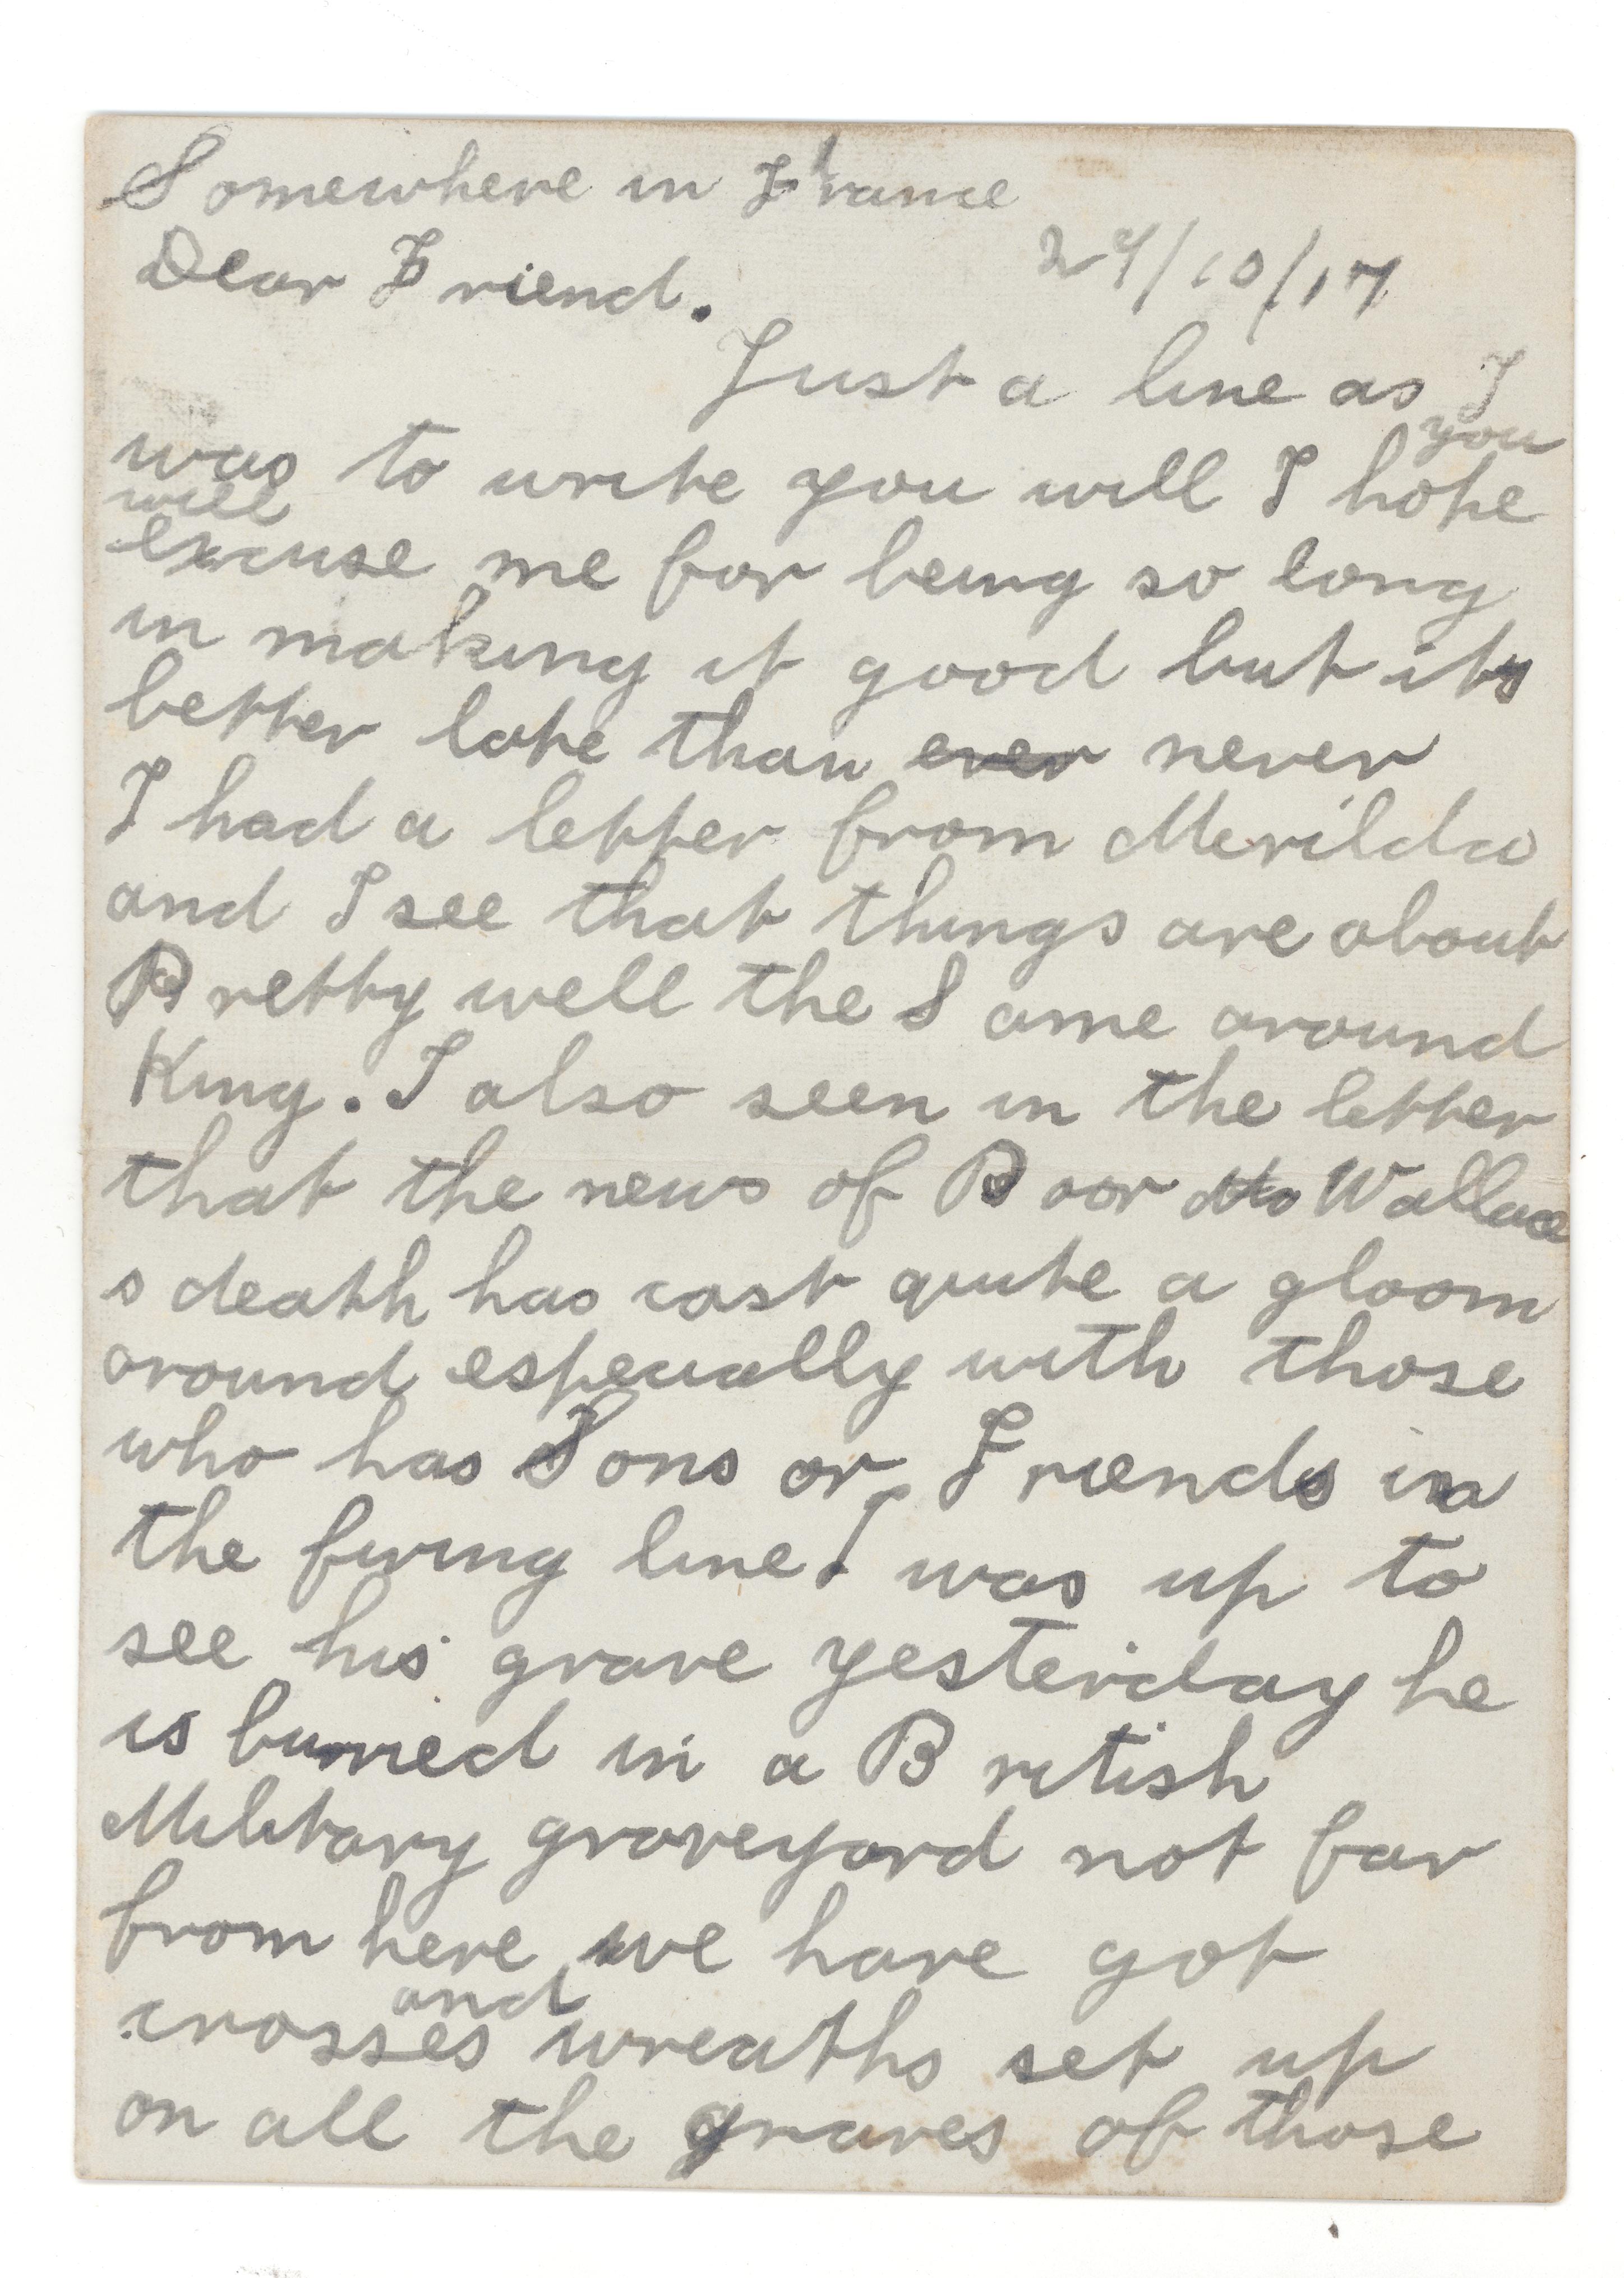 Somewhere in France
29/10/17
Dear Friend.
Just a line as I
was to write you will I hope you
will
excuse me for being so long
in making it good but its
better late than ever never
I had a letter from Merilda
and I see that things are about
Pretty well the Same around
King. I also seen in the letter
that the news of Poor Wallace
s death has cast quite a gloom
around especially with those
who has Sons or Friends in
the firing line I was up to
see his grave yesterday he
is burried in a British
Military graveyard not far
from here we have got
and
crosses wreaths set up
on all the graves of those